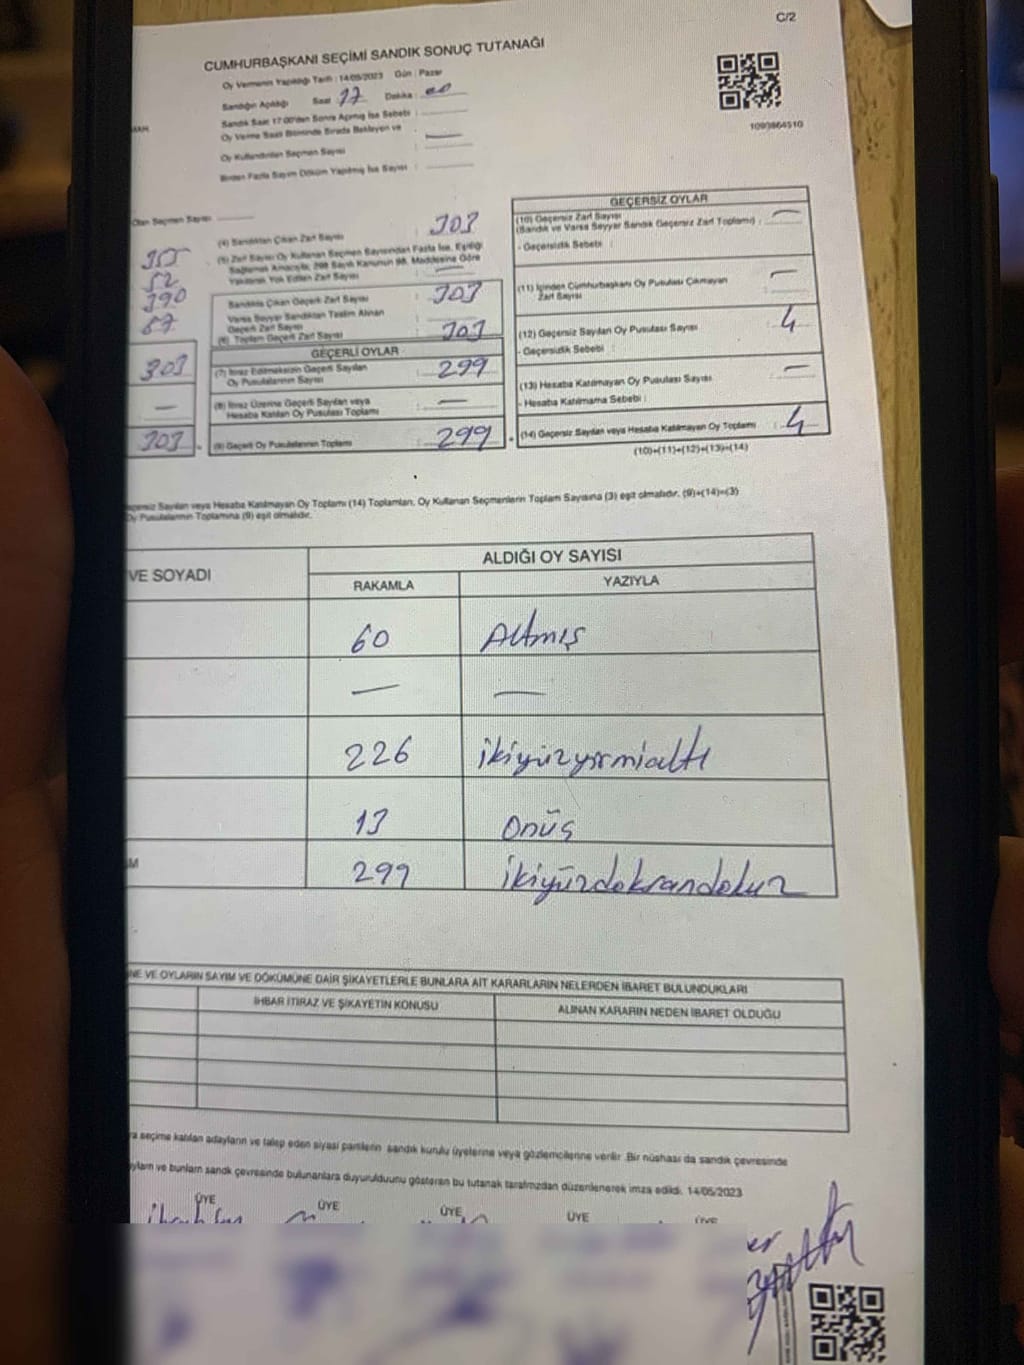 C/2
CUMHURBAŞKANI SEÇİMİ SANDIK SONUÇ TUTANAĞI
Oy Vermenin Yapıldığı Tarih : 14/05/2023 Gün : Pazar
Sandığın Açıldığı Saat : 17 Dakika : 00
Sandık Saat 17:00'den Sonra Açılmış İse Sebebi :
Oy Verme Saati Bitiminde Sırada Bekleyen ve
Oy Kullandırılan Seçmen Sayısı :
Birden Fazla Sayım Döküm Yapılmış İse Sayısı :
1093864510
Olan Seçmen Sayısı
52
390
87
303
—
303
(4) Sandıktan Çıkan Zarf Sayısı : 303
(5) Zarf Sayısı Oy Kullanan Seçmen Sayısından Fazla İse, Eşitliği
Sağlamak Amacıyla, 298 Sayılı Kanunun 98. Maddesine Göre
Yakılarak Yok Edilen Zarf Sayısı : —
Sandıkta Çıkan Geçerli Zarf Sayısı : 303
Varsa Seyyar Sandıktan Teslim Alınan
Geçerli Zarf Sayısı :
(6) Toplam Geçerli Zarf Sayısı : 303
GEÇERLİ OYLAR
(7) İtiraz Edilmeksizin Geçerli Sayılan
Oy Pusulalarının Sayısı : 299
(8) İtiraz Üzerine Geçerli Sayılan veya
Hesaba Katılan Oy Pusulası Toplamı : —
(9) Geçerli Oy Pusulalarının Toplamı : 299
GEÇERSİZ OYLAR
(10) Geçersiz Zarf Sayısı
(Sandık ve Varsa Seyyar Sandık Geçersiz Zarf Toplamı) : —
- Geçersizlik Sebebi :
(11) İçinden Cumhurbaşkanı Oy Pusulası Çıkmayan
Zarf Sayısı : —
(12) Geçersiz Sayılan Oy Pusulası Sayısı : 4
- Geçersizlik Sebebi :
(13) Hesaba Katılmayan Oy Pusulası Sayısı : —
- Hesaba Katılmama Sebebi :
(14) Geçersiz Sayılan veya Hesaba Katılmayan Oy Toplamı : 4
(10)+(11)+(12)+(13)=(14)
Sayılan veya Hesaba Katılmayan Oy Toplamı (14) Toplamları, Oy Kullanan Seçmenlerin Toplam Sayısına (3) eşit olmalıdır. (9)+(14)=(3)
Oy Pusulalarının Toplamına (9) eşit olmalıdır.
VE SOYADI
ALDIĞI OY SAYISI
RAKAMLA YAZIYLA
60 Altmış
— —
226 ikiyüzyirmialtı
13 Onüç
299 ikiyüzdoksandokuz
VE OYLARIN SAYIM VE DÖKÜMÜNE DAİR ŞİKAYETLERLE BUNLARA AİT KARARLARIN NELERDEN İBARET BULUNDUKLARI
İHBAR İTİRAZ VE ŞİKAYETİN KONUSU ALINAN KARARIN NEDEN İBARET OLDUĞU
seçime katılan adayların ve talep eden siyasi partilerin sandık kurulu üyelerine veya gözlemcilerine verilir. Bir nüshası da sandık çevresinde
ve bunların sandık çevresinde bulunanlara duyurulduunu gösteren bu tutanak tarafımızdan düzenlenerek imza edildi. 14/05/2023
ÜYE ÜYE ÜYE ÜYE ÜYE